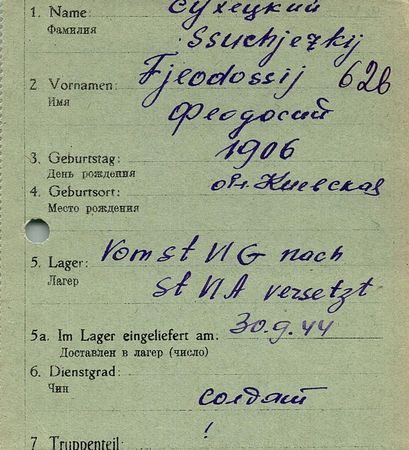 1. Name: Сухецкий
Фамилия
Ssuchjezkij
2 Vornamen: Fjeodossij 626
Имя
Феодосий
3. Geburtstag: 1906
День рождения
4. Geburtsort: обл. Киевская
Место рождения
5. Lager: Vom st VI G nach
Лагер
st VI A versetzt
5a. Im Lager eingeliefert am: 30.9.44
Доставлен в лагер (число)
6. Dienstgrad:
Чин
солдат
!
7 Truppenteil: